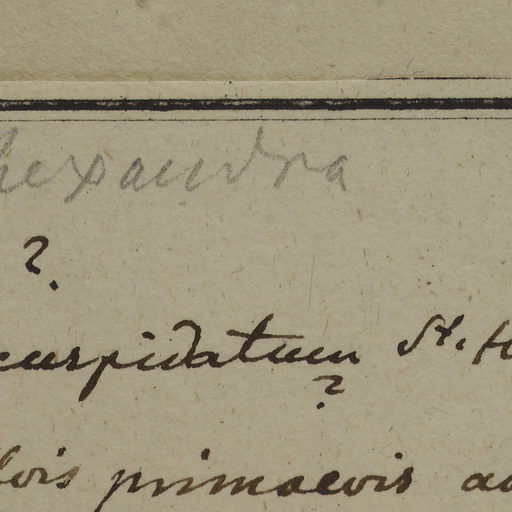 hexandra
?
cuspidatum St. H
?
lvis primaevis a